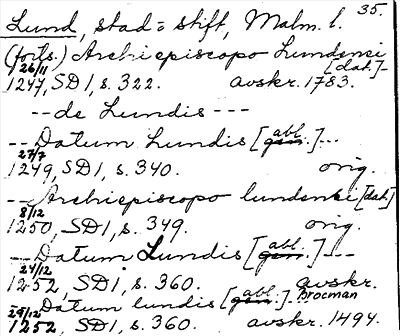 35.
Lund, stad o stift, Malm. l.
(forts.) Archiepiscopo Lundensi [dat.]-
26/11 1247, SD 1, s. 322. avskr. 1783.
-- de Lundis ---
-- Datum Lundis [gen. abl.]--
27/7 1249, SD 1, s. 340. orig.
-- Archiepiscopo lundensi [dat]
8/12 1250, SD 1, s. 349. orig.
-- Datum Lundis [gen. abl.] ---
24/12 1252, SD 1, s. 360. avskr. Brocman
Datum lundis [gen. abl.]
29/12 1252, SD 1, s. 360. avskr. 1494.